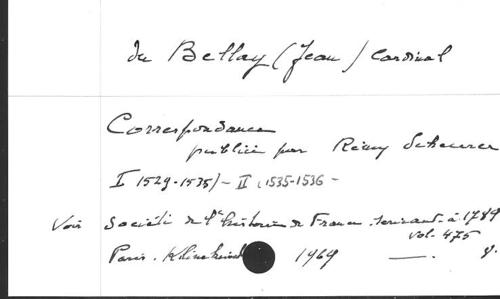 du Bellay (Jean) Cardinal
Correspondance
publiée par Rémy Scheurer
I 1529-1535) - II (1535-1536 -
Voir Société de l'histoire de France. à 1789
vol. 475
Paris. Klincksieck 1969 — 8.